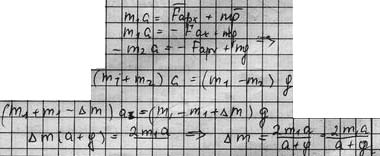 m₁a = Fарх + mg
m₁a = - Fах + mg
- m₂a = - Fарх + mg ⇒
(m₁ + m₂) a = (m₁ - m₂) g
(m₁ + m₁ - Δm) a = (m₁ - m₁ + Δm) g
Δm (a + g) = 2m₁a ⇒ Δm = 2m₁a / (a + g) = 2m₁a / (a + g)